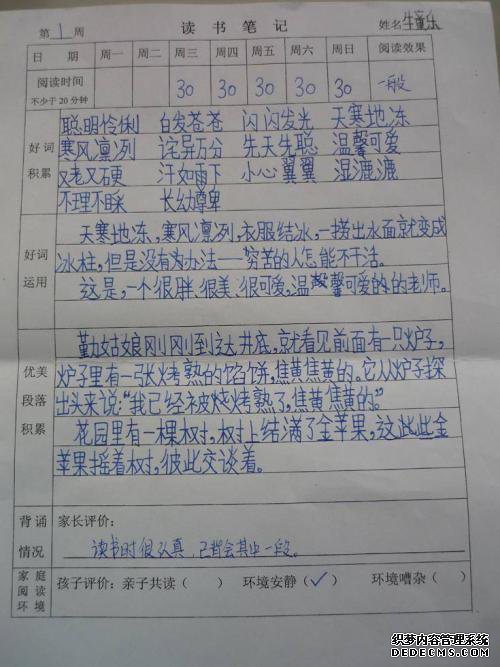 第 1 周 读书笔记 姓名 牛童乐
日期 周一 周二 周三 周四 周五 周六 周日 阅读效果
阅读时间 不少于20分钟 30 30 30 30 30 一般
好词积累
聪明伶俐 白发苍苍 闪闪发光 天寒地冻
寒风凛冽 诧异万分 先天失聪 温馨可爱
又老又硬 汗如雨下 小心翼翼 湿漉漉
不理不睬 长幼尊卑
好词运用
天寒地冻,寒风凛冽,衣服结冰,一捞出水面就变成
冰柱,但是没有办法——穷苦的人怎能不干活。
这是,一个很胖、很美、很可爱,温馨可爱的的老师。
优美段落积累
勤姑娘刚刚到达井底,就看见前面有一只炉子,
炉子里有一张烤熟的馅饼,焦黄焦黄的。它从炉子探
出头来说:“我已经被烘烤熟了,焦黄焦黄的。”
花园里有一棵树,树上结满了金苹果,这此此金
苹果摇着树,彼此交谈着。
背诵情况
家长评价:
读书时很认真,已背会其中一段。
家庭阅读环境
孩子评价:亲子共读( ) 环境安静(✓) 环境嘈杂( )
织梦内容管理系统